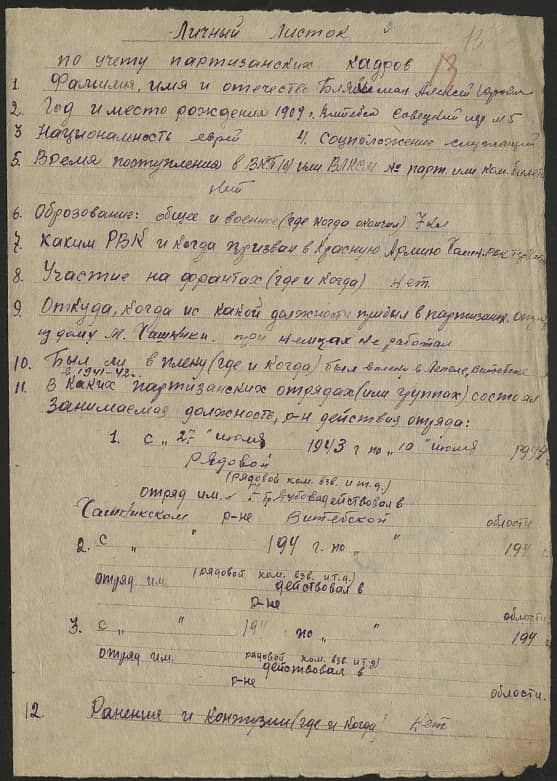 Личный листок
13
по учету партизанских кадров
13
1. Фамилия, имя и отечество Алексей
2. Год и место рождения 1909 г. Витебск Советский №5
3 Национальность еврей 4. Соцположение служащий
5. Время поступления в ВКП(б) или ВЛКСМ № парт. или ком. билета
нет
6. Оброзование: общее и военное (где когда окончил) 7 кл
7. каким РВК и когда призван в Красную Армию
8. Участие на фронтах (где и когда) нет
9. Откуда, когда и с какой должности прибыл в партизанск.
из дому м. Чашники. при немцах не работал
10. Был ли в плену (где и когда) был в плену в Лепеле, Витебске
в 1941-42г.
11. В каких партизанских отрядах (или группах) состоял
Занимаемая должность, р-н действия отряда:
1. с „27" июля 1943 г по „10" июля 1944
рядовой
(рядовой ком. взв. и т.д.)
отряд им. действовал в
Чашникском р-не Витебской области
2. с „ " 194 г. по „ " 194
(рядовой ком. взв. и т.д.)
отряд им. действовал в
р-не области
3. с „ " 19 по „ " 194
рядовой ком. взв. и т.д.
отряд им. действовал в
р-не области.
12. Ранения и контузии (где и когда) нет